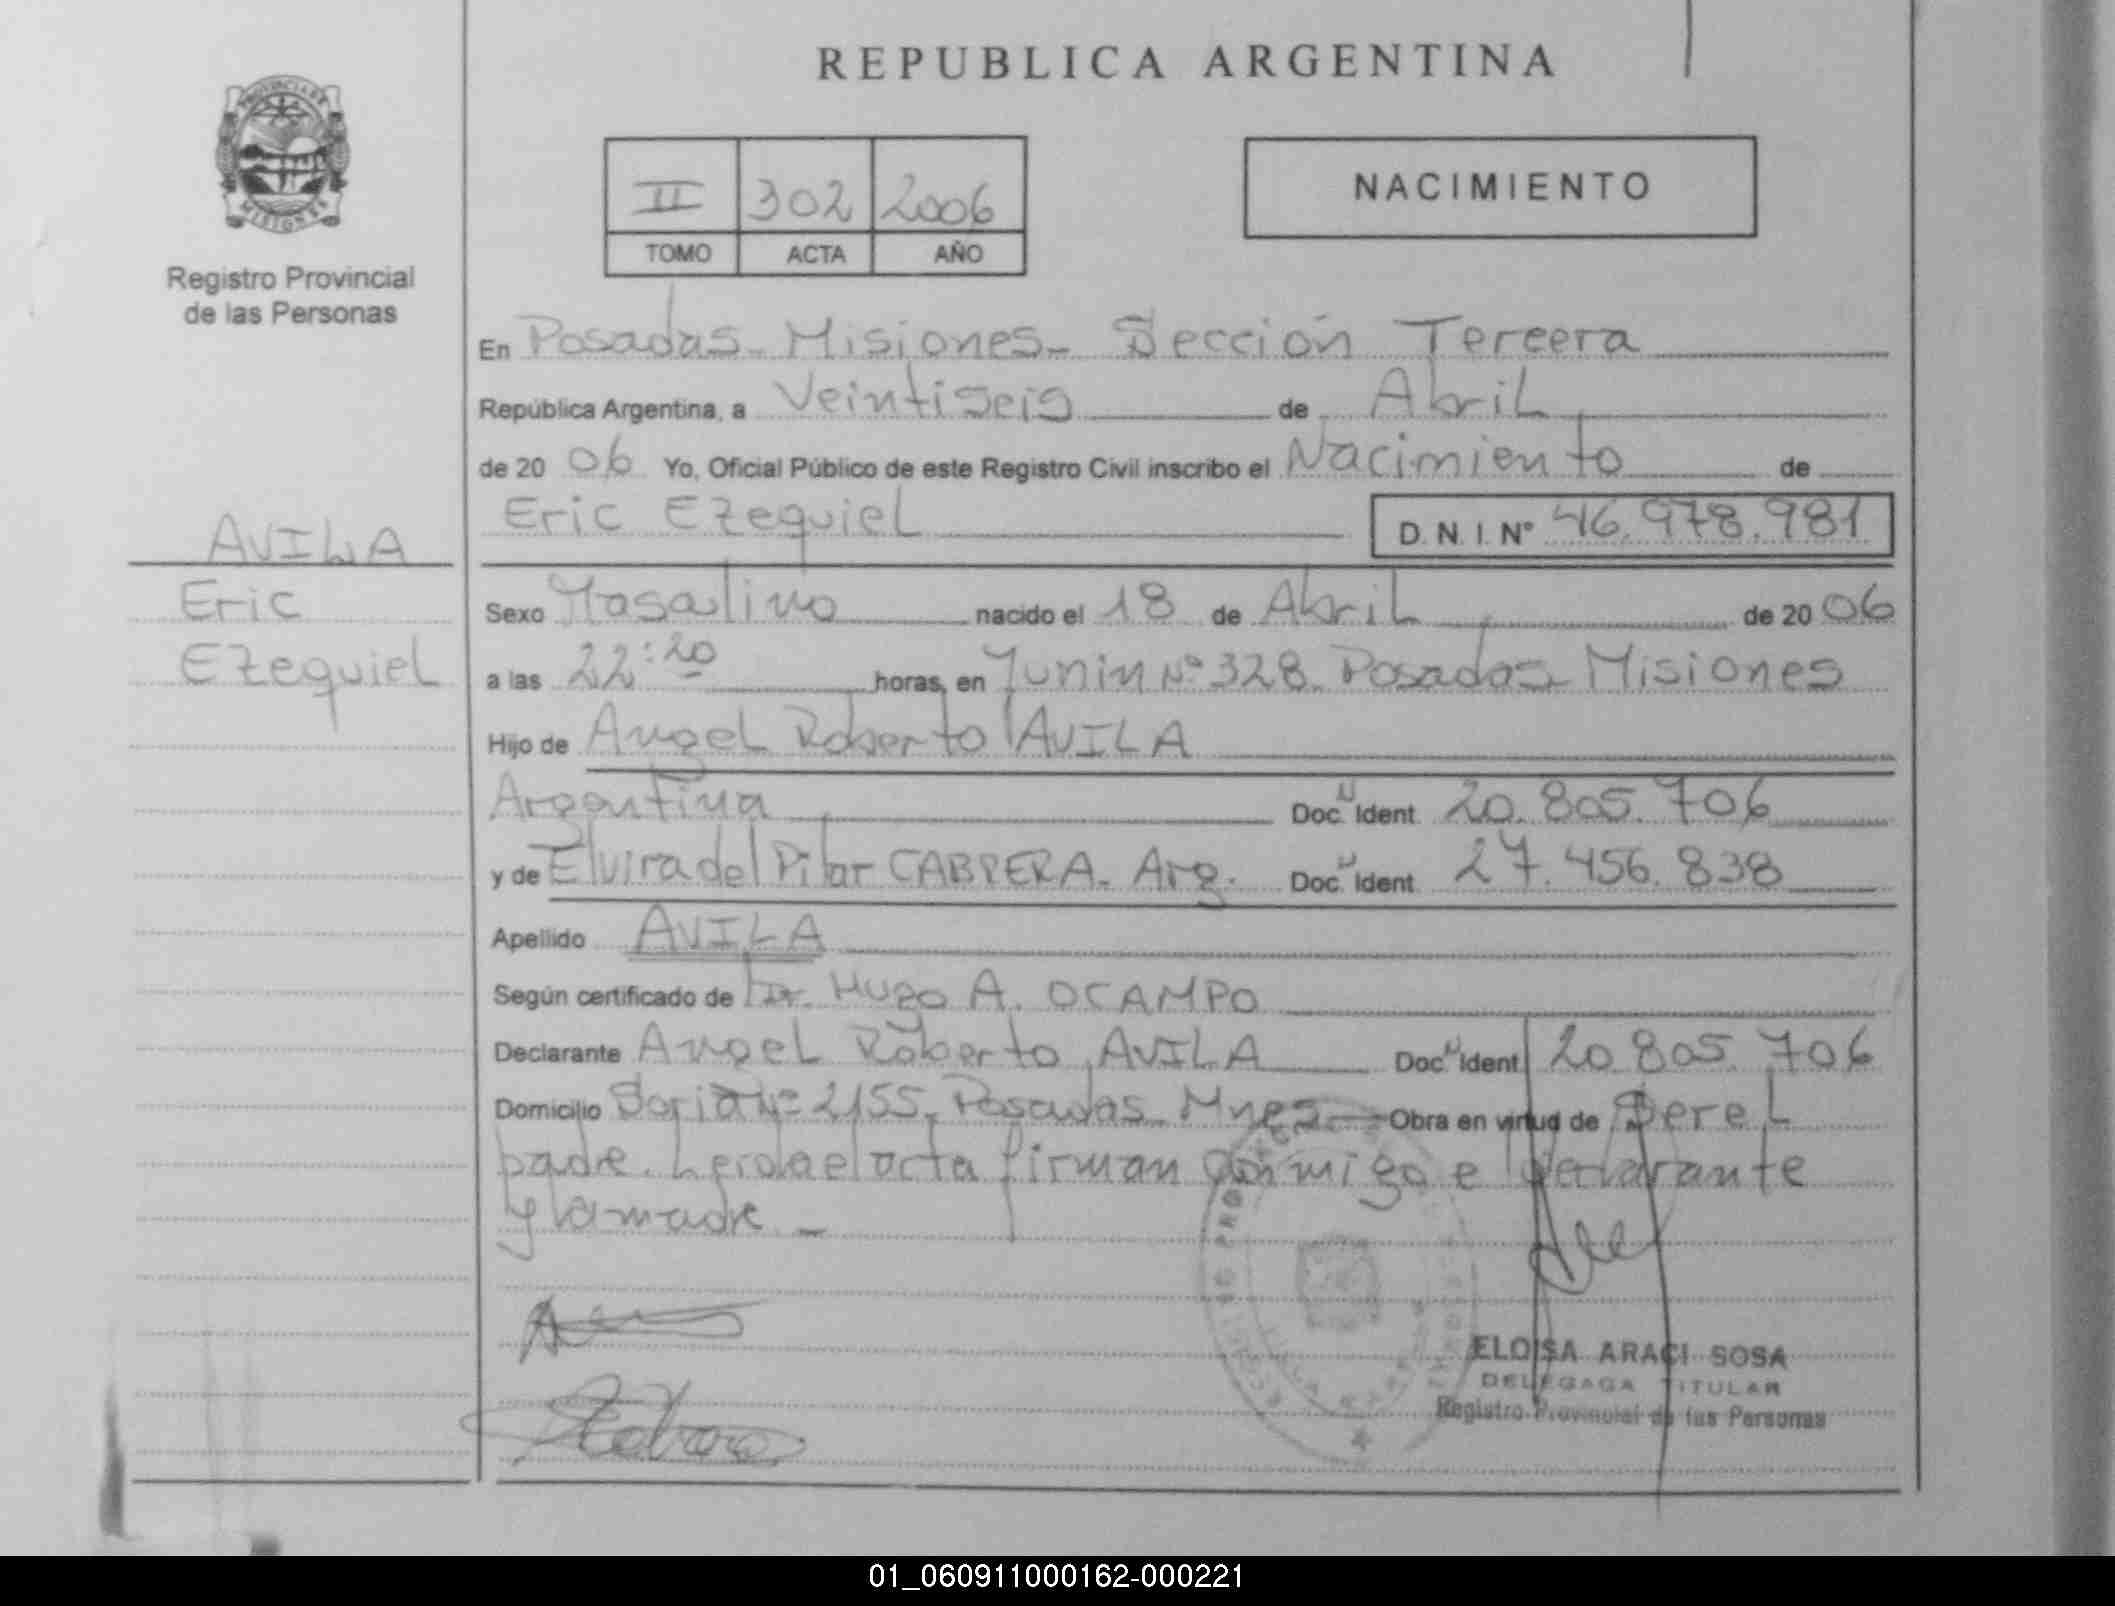 REPUBLICA ARGENTINA
PROVINCIA DE
MISIONES
Registro Provincial
de las Personas
II 302 2006
TOMO ACTA AÑO
NACIMIENTO
En Posadas - Misiones - Sección Tercera
República Argentina, a Veintiseis de Abril
de 20 06 Yo, Oficial Público de este Registro Civil inscribo el Nacimiento de
Eric Ezequiel D. N. I. Nº 46.978.981
AVILA
Eric
Ezequiel
Sexo Masculino nacido el 18 de Abril de 20 06
a las 22:20 horas, en Junin Nº 328 Posadas - Misiones
Hijo de Angel Roberto AVILA
Argentina Doc. Ident. 20.805.706
y de Elvira del Pilar CABRERA. Arg. Doc. Ident. 27.456.838
Apellido AVILA
Según certificado de Dr. HUGO A. OCAMPO
Declarante Angel Roberto AVILA Doc. Ident. 20.805.706
Domicilio Soria Nº 2155. Posadas - Mnes - Obra en virtud de Ser el
padre. Leida el acta firman conmigo el declarante
y la madre -
ELOISA ARACI SOSA
DELEGADA TITULAR
Registro Provincial de las Personas
01_060911000162-000221